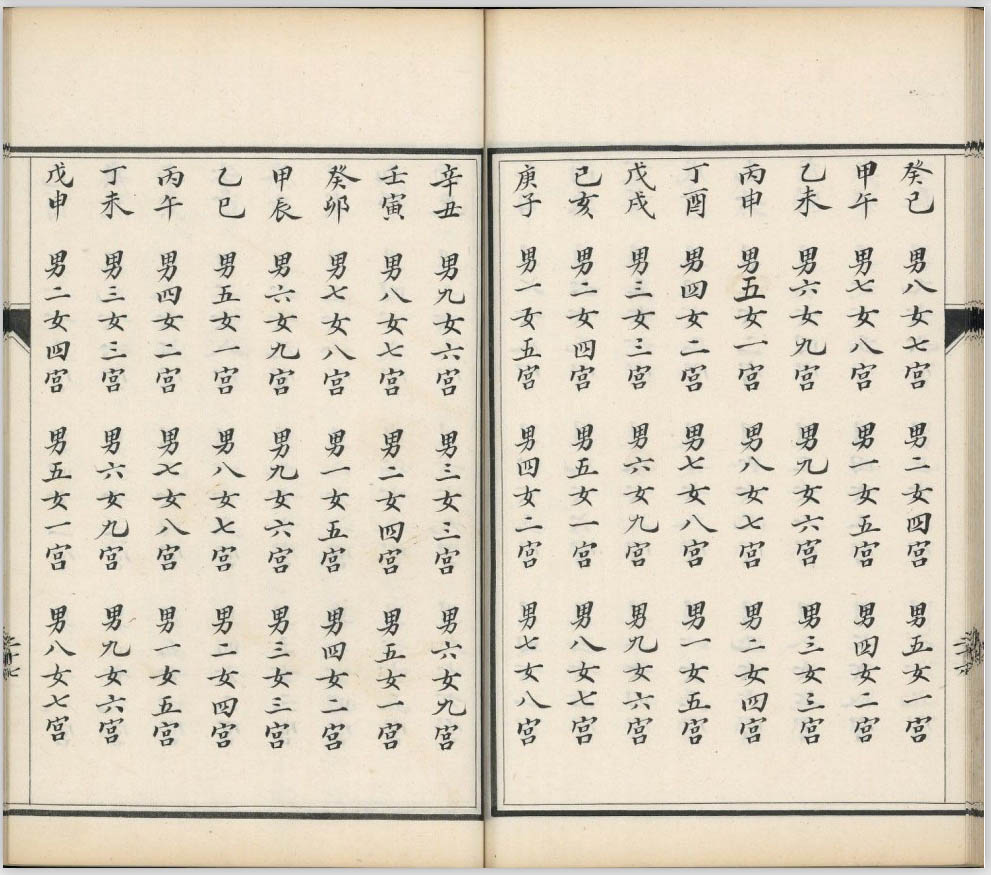 癸巳 男八女七宮 男二女四宮 男五女一宮
甲午 男七女八宮 男一女五宮 男四女二宮
乙未 男六女九宮 男九女六宮 男三女三宮
丙申 男五女一宮 男八女七宮 男二女四宮
丁酉 男四女二宮 男七女八宮 男一女五宮
戊戌 男三女三宮 男六女九宮 男九女六宮
己亥 男二女四宮 男五女一宮 男八女七宮
庚子 男一女五宮 男四女二宮 男七女八宮
辛丑 男九女六宮 男三女三宮 男六女九宮
壬寅 男八女七宮 男二女四宮 男五女一宮
癸卯 男七女八宮 男一女五宮 男四女二宮
甲辰 男六女九宮 男九女六宮 男三女三宮
乙巳 男五女一宮 男八女七宮 男二女四宮
丙午 男四女二宮 男七女八宮 男一女五宮
丁未 男三女三宮 男六女九宮 男九女六宮
戊申 男二女四宮 男五女一宮 男八女七宮